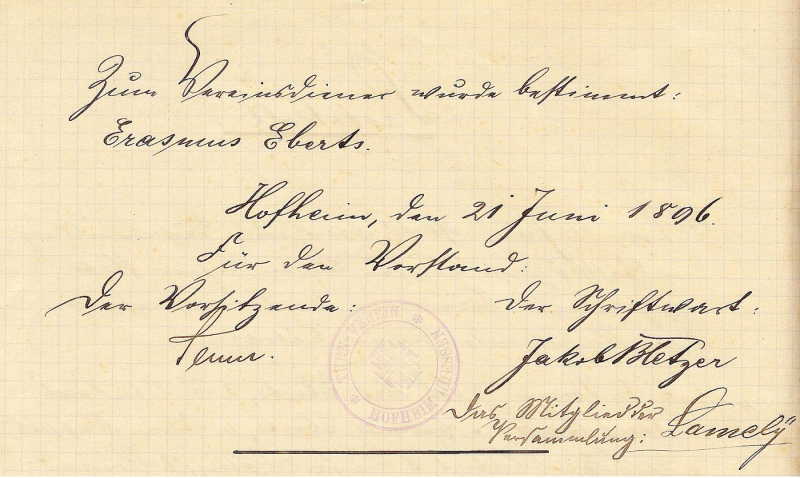 Zum Vereinsdiener wurde bestimmt:
Erasmus Eberts.
Hofheim, den 21 Juni 1896.
Für den Vorstand:
Der Vorsitzende: Der Schriftwart:
Jakob
Das Mitglied der
Versammlung: Lamely
TURN-VEREIN
HOFHEIM